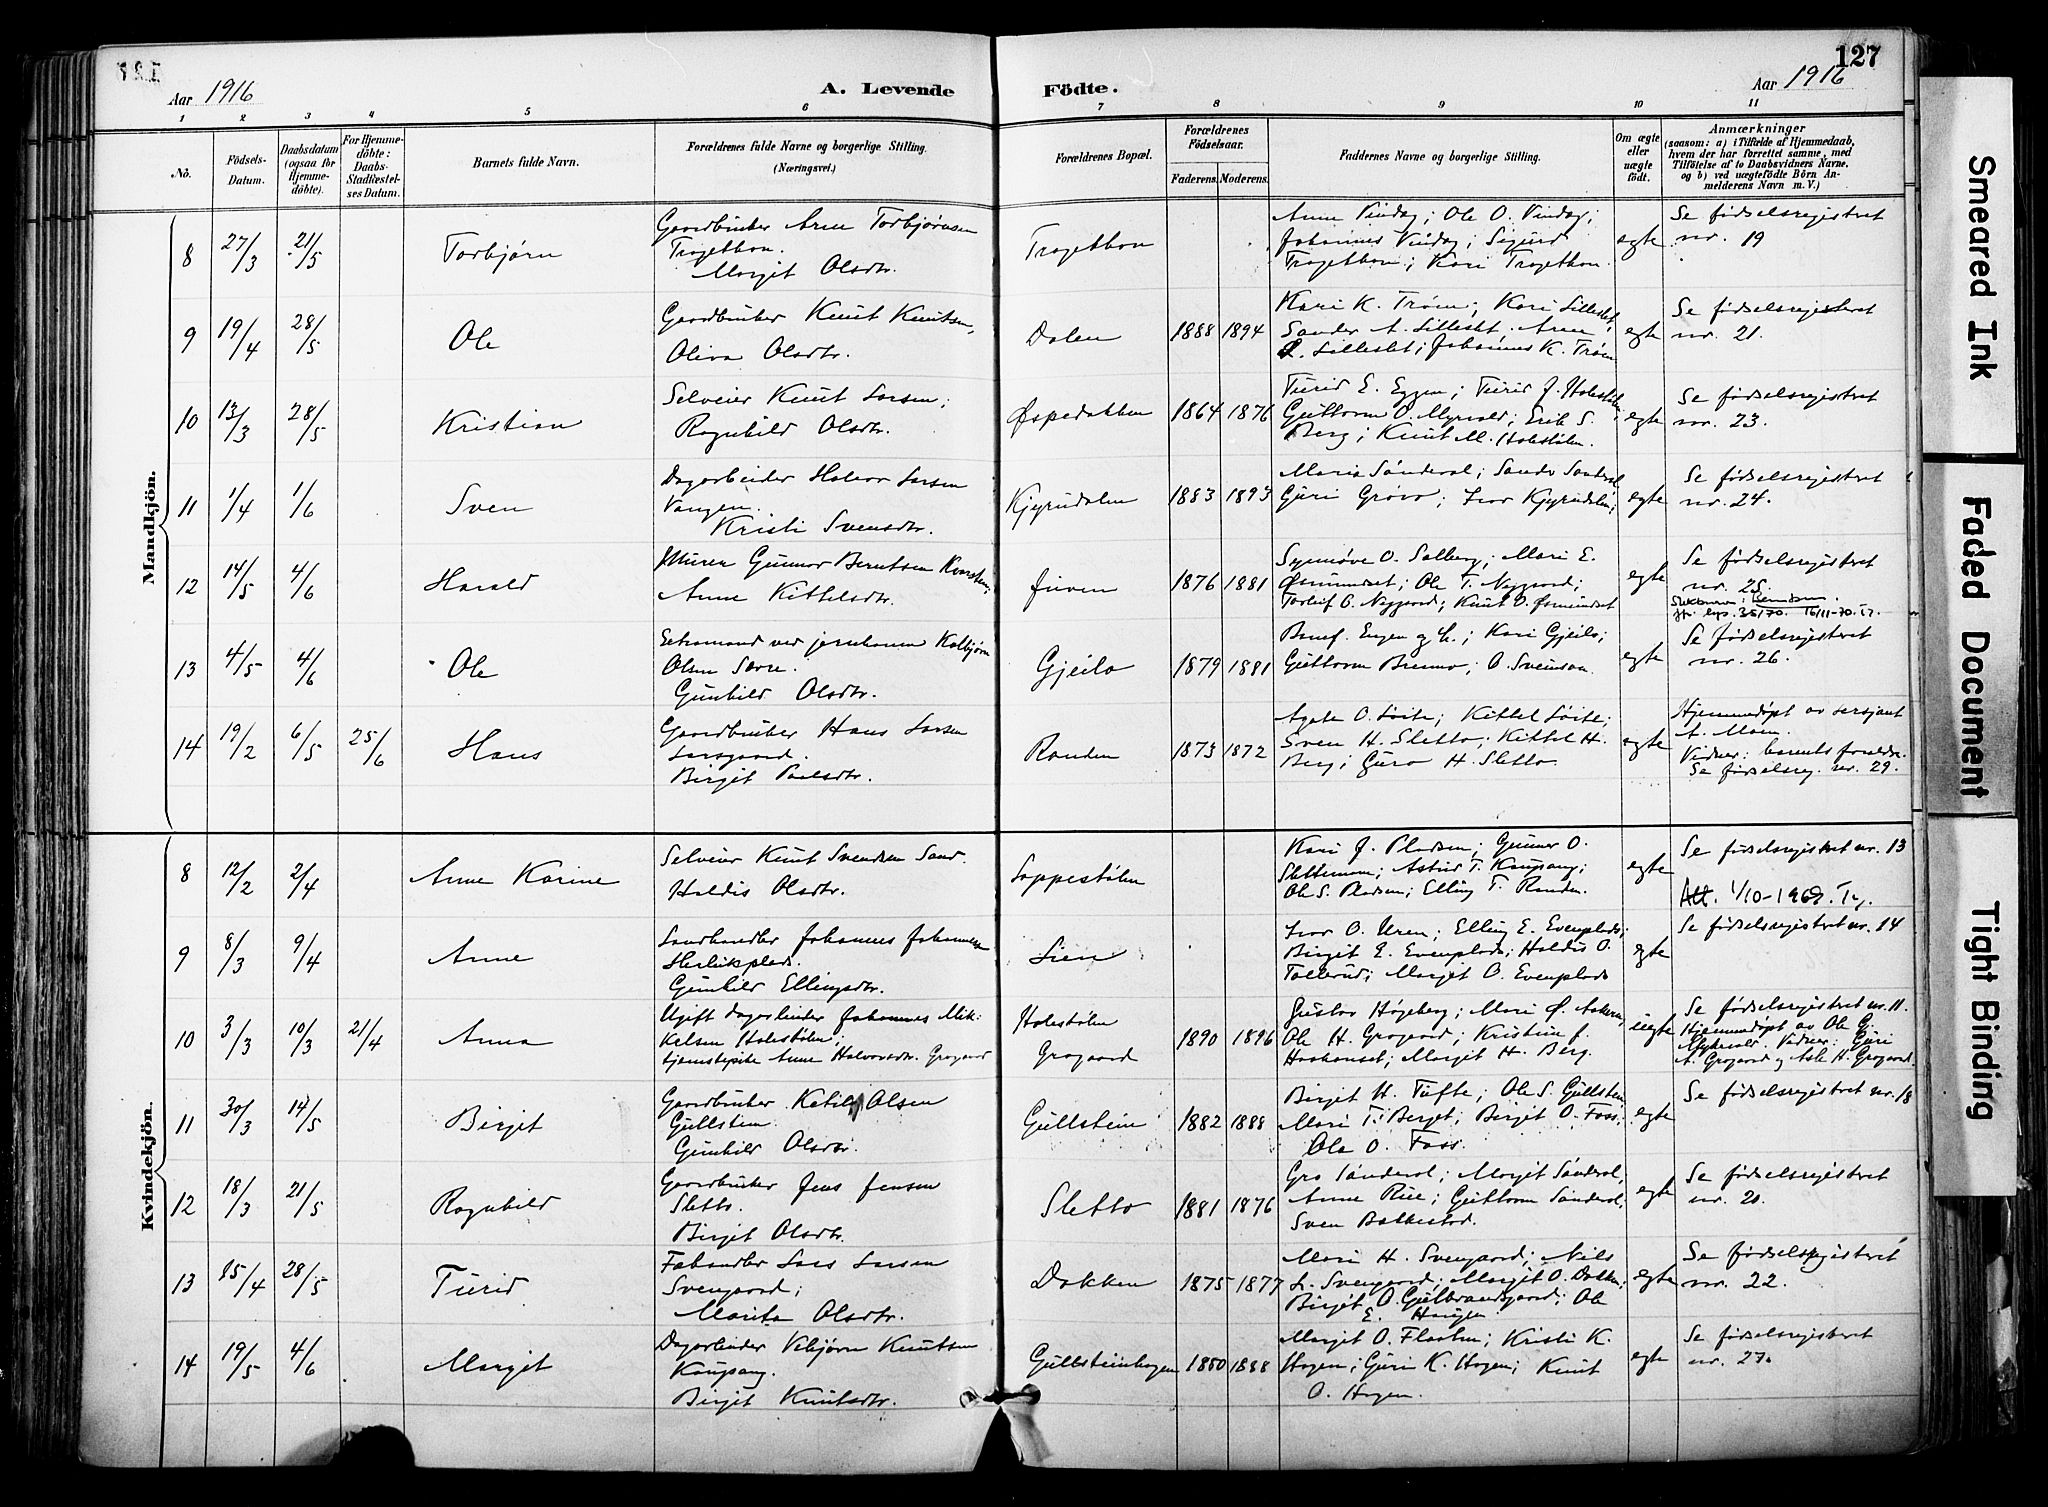 127
Aar 1916
A. Levende Födte.
Aar 1916
1 2 3 4 5 6 7 8 9 10 11
No.
Födsels-
Datum.
Daabsdatum
(ogsaa for
Hjemme-
döbte).
For Hjemme-
döbte:
Daabs-
Stadfæstel-
ses Datum.
Barnets fulde Navn.
Forældrenes fulde Navne og borgerlige Stilling.
(Næringsvei.)
Forældrenes Bopæl.
Forældrenes
Födselsaar.
Faderens. Moderens.
Faddernes Navne og borgerlige Stilling.
Om ægte
eller
uægte
födt.
Anmærkninger
(saasom: a) i Tilfælde af Hjemmedaab,
hvem der har forrettet samme, med
Tilföielse af to Daabsvidners Navne.
og b) ved uægtefödte Börn An-
melderens Navn m. V.)
Mandkjön.
8 27/3 21/5 Torbjørn
Gaardbruker Arne Torbjørnsen
Margit Olsdtr.
Anne Vindag; Ole O. Vindag;
Johannes Vindag; Sigurd
egte
Se fødselsregistret
nr. 19
9 19/4 28/5 Ole
Gaardbruker Knut Knutsen,
Oliva Olsdtr.
Dalen 1888 1894
Kari K. Trøim; Kari Lilleslet;
Sander A. Lilleslet. Arne
Lilleslet; Johannes K. Trøim
egte
Se fødselsregisteret
nr. 21.
10 13/3 28/5 Kristian
Selveier Knut Larsen;
Ragnhild Olsdtr.
Øspedokken 1864 1876
Turid E. Eggen; Turid J. Holestølen;
Guttorm O. Myrvold; Erik S.
Berg; Knut M. Holestølen.
egte
Se fødselsregistret
nr. 23.
11 1/4 1/6 Sven
Dagarbeider Halvor Larsen
Vangen.
Kristi Svensdtr.
Kjyrudalen 1883 1893
Maria Sønderal; Sander Sønderal
Guri Grøvo; Ivar Kjyrudalen;
egte
Se fødselsregistret
nr. 24.
12 14/5 4/6 Harald
Murer Gunnar Berntsen Kvarstein;
Anne Kittelsdtr.
Juven 1876 1881
Synnøve O. Solberg; Mari E.
Øsmundset; Ole T. Nygaard;
Torleif O. Nygaard; Knut O. Øsmundset
egte
Se fødselsregistret
nr. 25
13 4/5 4/6 Ole
Extramand ved jernbanen Kolbjørn
Olsen Sørre.
Gunhild Olsdtr.
Gjeilo 1879 1881
Banef. Engen og h.; Kari Gjeilo;
Guttorm Brenno; O. Svenson.
egte
Se fødselsregistret
nr. 26.
14 19/2 6/5 25/6 Hans
Gaardbruker Hans Larsen
Larsgaard.
Birgit Paulsdtr.
Randen 1873 1872
Agate O. Løite; Kittel Løite;
Sven H. Sletto; Kittel H.
Berg; Guro H. Sletto
egte
Hjemmedøpt av sersjant
A. Moen.
Vidner: barnets foreldre.
Se fødselsreg. nr. 29.
Kvindekjön.
8 12/2 2/4 Anne Karine
Selveier Knut Svendsen Sand.
Haldis Olsdtr.
Loppestølen
Kari J. Pladsen; Gunnar O.
Slettemoen; Astrid T. Kaupang;
Ole S. Pladsen; Elling T. Randen.
egte
Se fødselsregistret nr. 13
Att. 1/10-1968. Ty.
9 8/3 9/4 Anne
Landhandler Johannes Johannesen
Herleiksplads.
Gunhild Ellingsdtr.
Lien
Ivar O. Uren; Elling E. Evenplads;
Birgit E. Evenplads; Haldis O.
Tollerud; Margit O. Evenplads
egte
Se fødselsregistret nr. 14
10 3/3 10/3 21/4 Anna
Ugift dagarbeider Johannes Mik-
kelsen Holestølen;
tjenestepike Anne Halvorsdtr. Grøgaard
Holestølen
Grøgaard 1890 1896
Gustav Høgeberg; Mari Ø. Aakeren;
Ole H. Grøgaard; Kristine J.
Haakonset; Margit H. Berg.
uegte
Se fødselsregistret nr. 11.
Hjemmedøpt av Ole G.
Myhrvold. Vidner: Guri
A. Grøgaard og Asle H. Grøgaard
11 30/3 14/5 Birgit
Gaardbruker Ketil Olsen
Gullstein.
Gunhild Olsdtr.
Gullstein 1882 1888
Birgit H. Tufte; Ole S. Gullstein
Mari T. Berget; Birgit O. Foss;
Ola O. Foss.
egte
Se fødselsregistret nr. 18
12 18/3 21/5 Ragnhild
Gaardbruker Jens Jensen
Sletto.
Birgit Olsdtr.
Sletto 1881 1876
Gro Sønderal; Margit Sønderal,
Anne Rue; Guttorm Sønderal,
Sven Bakkestad.
egte
Se fødselsregistret
nr. 20.
13 25/4 28/5 Turid
Fehandler Lars Larsen
Svengaard;
Marita Olsdtr.
Dokken 1875 1877
Mari H. Svengaard; Niels
L. Svengaard; Margit O. Dokken;
Birgit O. Gulbrandsgaard; Ole
E. Haugen
egte
Se fødselsregistret
nr. 22.
14 19/5 4/6 Margit
Dagarbeider Vebjørn Knutsen
Kaupang.
Birgit Knutsdtr.
Gullsteinhagen 1880 1888
Margit O. Flaaten; Kristi K.
Hagen; Guri K. Hagen; Knut
O. Hagen.
egte
Se fødselsregistret
nr. 27.
Smeared Ink
Faded Document
Tight Binding